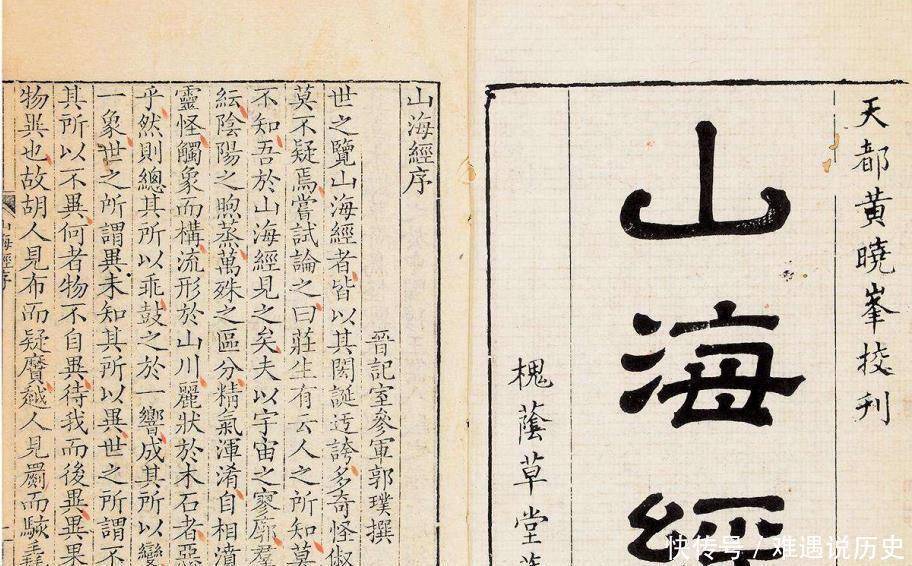 天都黄曉峯挍刊
山海經
槐蔭草堂
山海經序
晉記室參軍郭璞撰
世之覽山海經者皆以其閎誕迃誇多奇怪俶
莫不疑焉嘗試論之曰莊生有云人之所知莫
不知吾於山海經見之矣夫以宇宙之寥廓羣
紜陰陽之煦蒸萬殊之區分精氣渾淆自相濆
靈怪觸象而構流形於山川麗狀於木石者惡
乎然則總其所以乖鼓之於一響成其所以變
一象世之所謂異未知其所以異世之所謂不
其所以不異何者物不自異待我而後異異果
物異也故胡人見布而疑黂越人見罽而駭毳
山海經序
快传号 / 难遇说历史